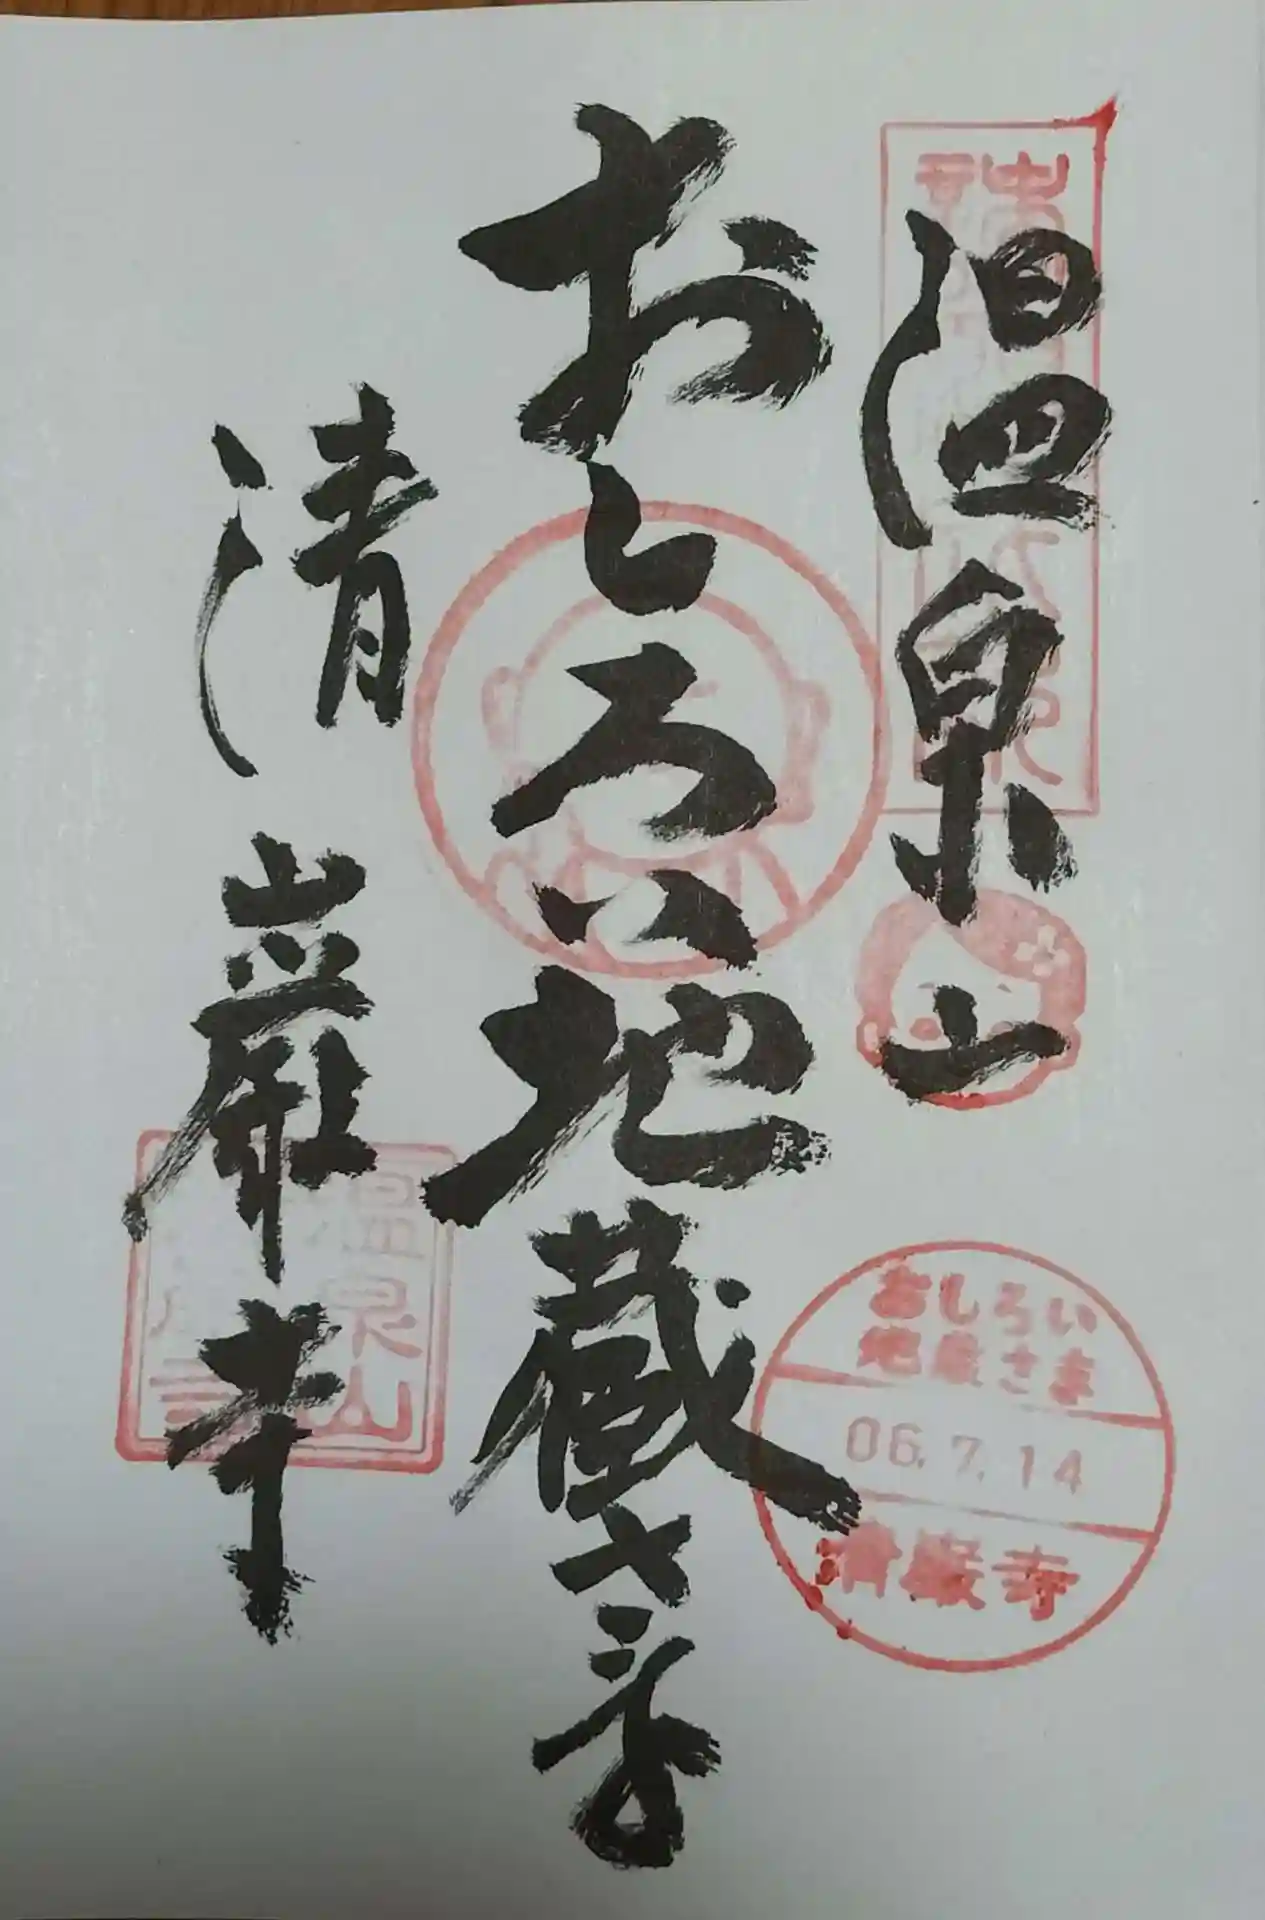 温泉山
おしろい地蔵さま
清巌寺
おしろい
地蔵さま
06.7.14
清巌寺
温泉山